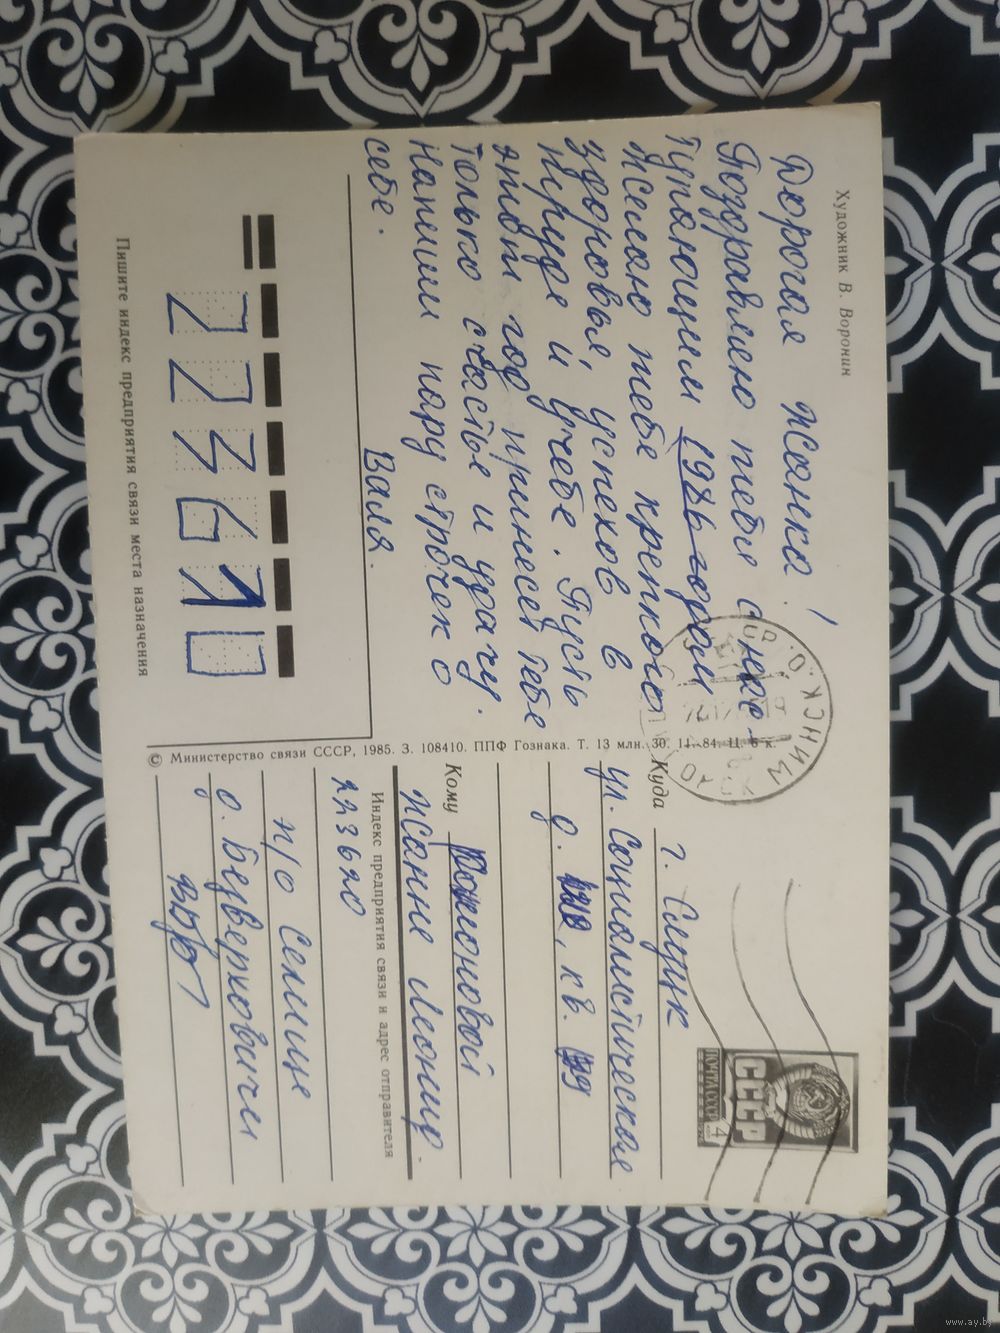 Художник В. Воронин
Дорогая Жанна!
Поздравляю тебя с нас-
тупающим 1986 годом
Желаю тебе крепкого
здоровья, успехов в
труде и учебе. Пусть
этот год принесет тебе
только счастье и удачу.
Напиши пару строчек о
себе.
Валя.
223610
Пишите индекс предприятия связи места назначения
© Министерство связи СССР, 1985. З. 108410. ППФ Гознака. Т. 13 млн. 30. 11. 84. Ц. 6 к.
СССР
ПОЧТА СССР 4
МИНСК. О.
Куда г. Слуцк
ул. Социалистическая
д. , кв.
Кому
Жанне Леонид-
Индекс предприятия связи и адрес отправителя
223620
п/о Селище
о. Безверховичи
www.ay.by